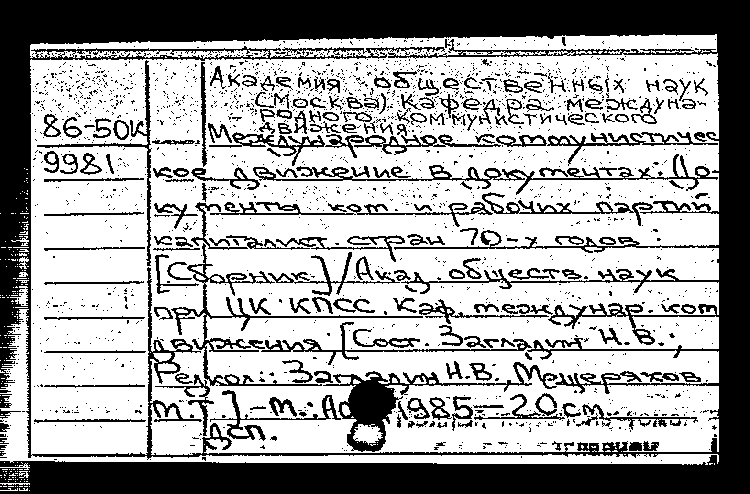 Академия общественных наук
(Москва) Кафедра междуна-
родного коммунистического
движения.
86-50к
9981
Международное коммунистичес
кое движение в документах: До-
кументы ком. и рабочих партий
капиталист. стран 70-х годов :
[Сборник] / Акад. обществ. наук
при ЦК КПСС. Каф. междунар. ком
движения; [Сост. Загладин Н.В.;
Редкол.: Загладин Н.В., Мещеряков
М.Т.] .-М.: 1985.-20см.
ДСП.